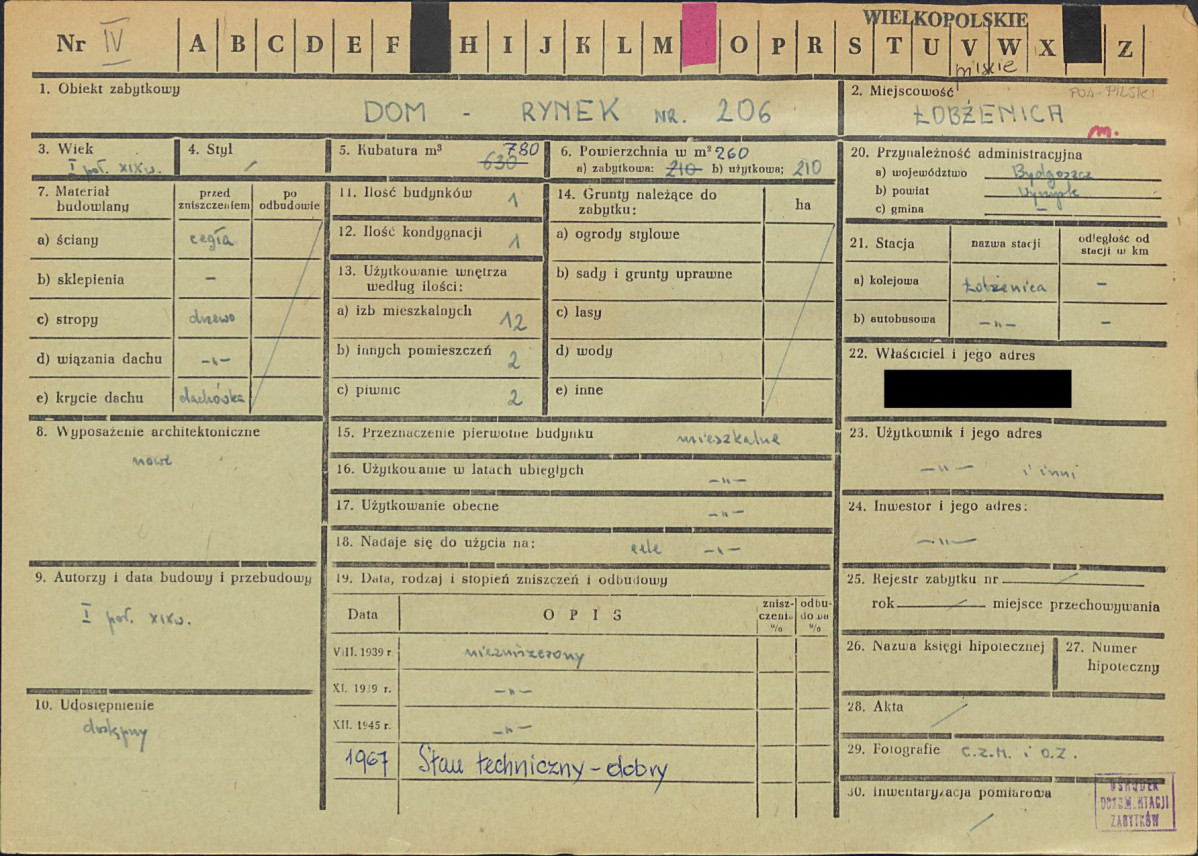 WIELKOPOLSKIE
Nr IV A B C D E F H I J K L M O P R S T U V W X Z
pilskie
1. Obiekt zabytkowy
DOM - RYNEK NR. 206
2. Miejscowość
POW. PILSKI
ŁOBŻENICA
m.
3. Wiek
I poł. XIX w.
4. Styl
5. Kubatura m³ 780
630
6. Powierzchnia w m² 260
a) zabytkowa: 210 b) użytkowa; 210
7. Materiał budowlany
przed zniszczeniem
po odbudowie
a) ściany cegła
b) sklepienia –
c) stropy drzewo
d) wiązania dachu –„–
e) krycie dachu dachówka
8. Wyposażenie architektoniczne
nowe
9. Autorzy i data budowy i przebudowy
I poł. XIX w.
10. Udostępnienie
dostępny
11. Ilość budynków 1
12. Ilość kondygnacji 1
13. Użytkowanie wnętrza
według ilości:
a) izb mieszkalnych 12
b) innych pomieszczeń 2
c) piwnic 2
14. Grunty należące do
zabytku:
ha
a) ogrody stylowe
b) sady i grunty uprawne
c) lasy
d) wody
e) inne
15. Przeznaczenie pierwotne budynku mieszkalne
16. Użytkowanie w latach ubiegłych –„–
17. Użytkowanie obecne –„–
18. Nadaje się do użycia na: cele –„–
19. Data, rodzaj i stopień zniszczeń i odbudowy
Data
OPIS
znisz-
czenia
%
odbu-
dowa
%
VIII. 1939 r. niezniszczony
XI. 1939 r. –„–
XII. 1945 r. –„–
1967 Stan techniczny - dobry
20. Przynależność administracyjna
a) województwo Bydgoszcz
b) powiat Wyrzysk
c) gmina –
21. Stacja
nazwa stacji
odległość od
stacji w km
a) kolejowa Łobżenica –
b) autobusowa –„– –
22. Właściciel i jego adres
23. Użytkownik i jego adres
–„– i inni
24. Inwestor i jego adres:
–„–
25. Rejestr zabytku nr
rok miejsce przechowywania
26. Nazwa księgi hipotecznej
27. Numer
hipoteczny
28. Akta
29. Fotografie C.Z.M. i O.Z.
30. Inwentaryzacja pomiarowa
OŚRODEK
DOKUMENTACJI
ZABYTKÓW